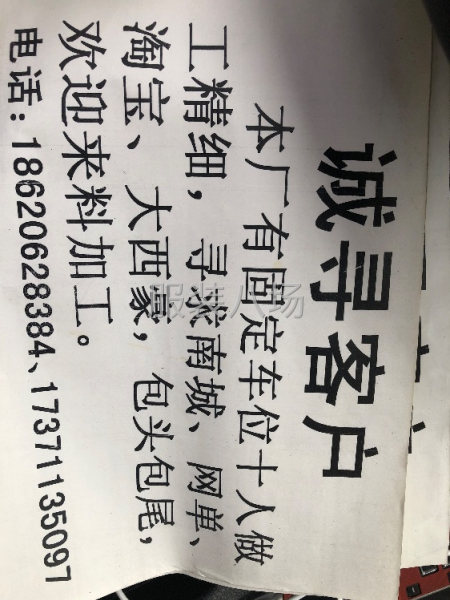 诚寻客户
本厂有固定车位十人做
工精细，寻求南城、网单、
淘宝、大西豪，包头包尾，
欢迎来料加工。
电话：18620628384、17371135097
服装八场